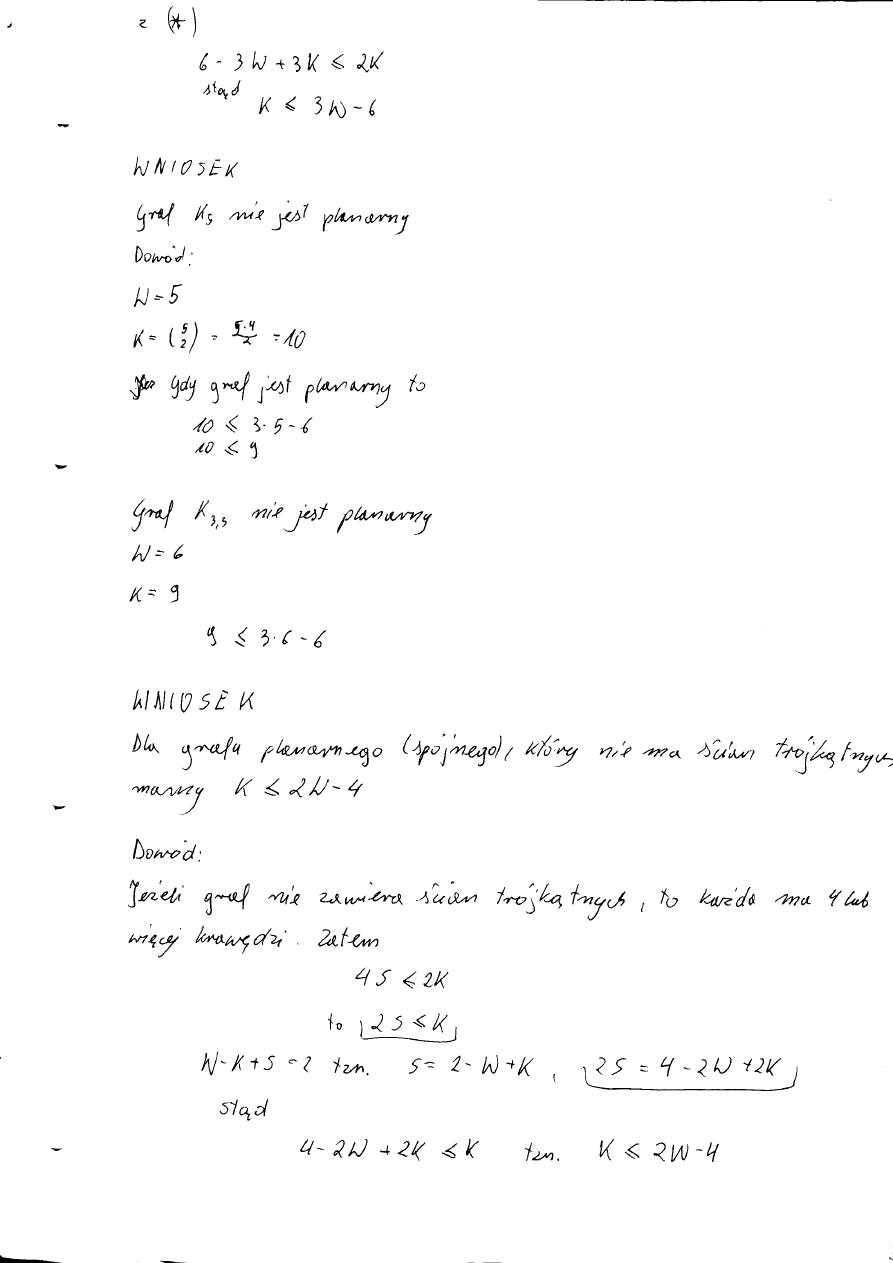 z (*)
6 - 3W + 3K ≤ 2K
stąd
K ≤ 3W - 6
WNIOSEK
Graf K₅ nie jest planarny
Dowód:
W = 5
K = (5 2) = 5·4/2 = 10
Gdy graf jest planarny to
10 ≤ 3·5-6
10 ≤ 9
Graf K₃,₃ nie jest planarny
W = 6
K = 9
9 ≤ 3·6-6
WNIOSEK
Dla grafu planarnego (spójnego), który nie ma ścian trójkątnych
mamy K ≤ 2W-4
Dowód:
Jeżeli graf nie zawiera ścian trójkątnych, to każda ma 4 lub
więcej krawędzi. Zatem
4S ≤ 2K
to 2S ≤ K
W-K+S = 2 tzn. S = 2-W+K, 2S = 4-2W+2K
stąd
4-2W+2K ≤ K tzn. K ≤ 2W-4